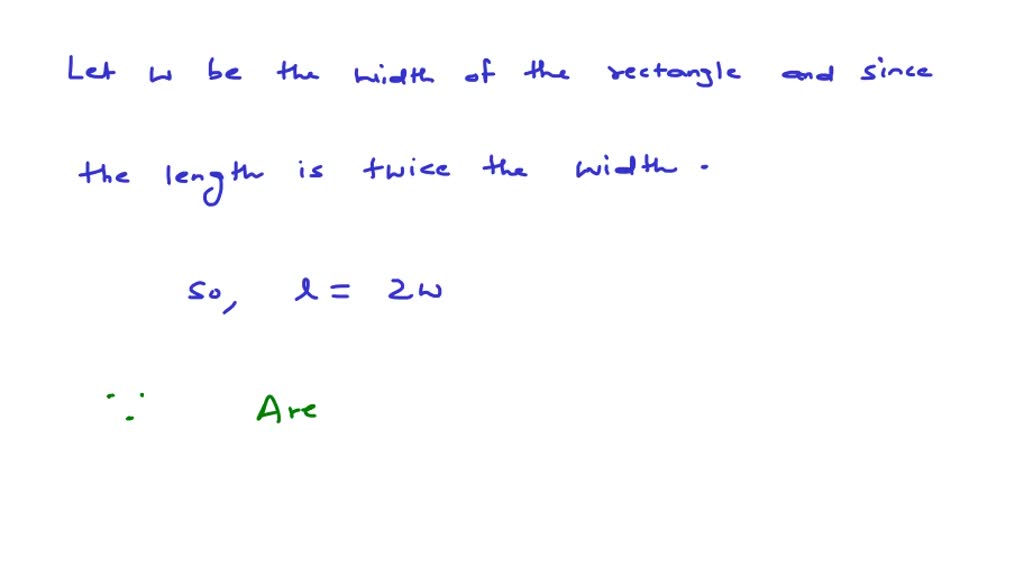 Let w be the width of the rectangle and since
the length is twice the width.
so, l = 2w
∵ Are